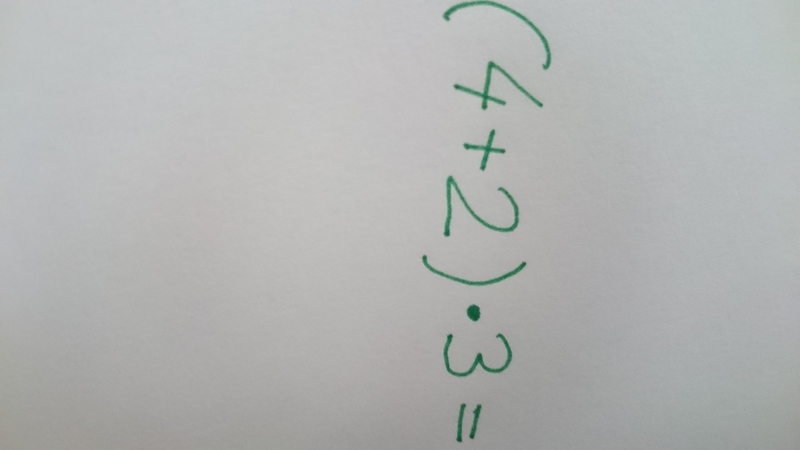 (4+2)·3=